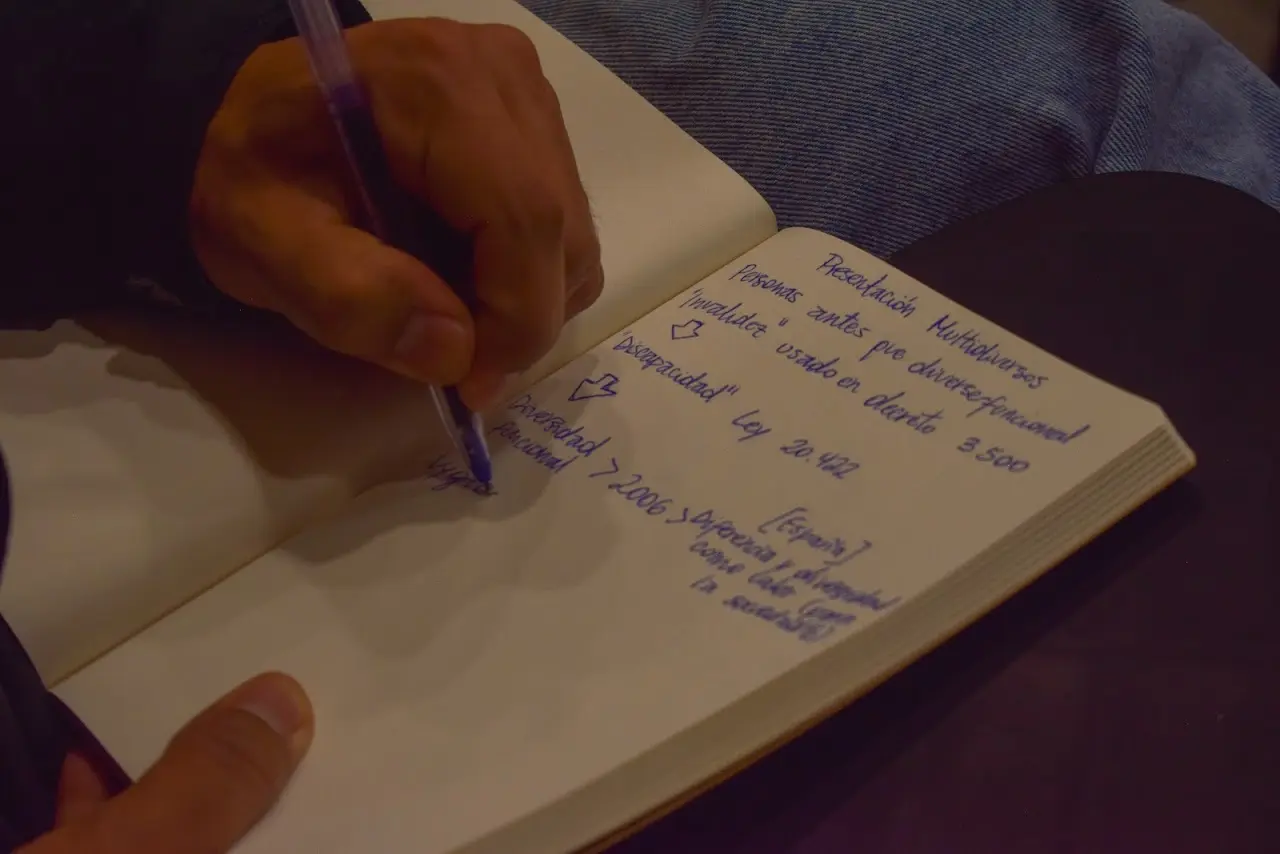 Presentación Multidiversos
Personas antes que diversefuncional
"Invalidez" usado en decreto 3.500
"Discapacidad" Ley 20.422
Diversidad > 2006 > [España]
funcional
Diferencia y diversidad
como
la sociedad